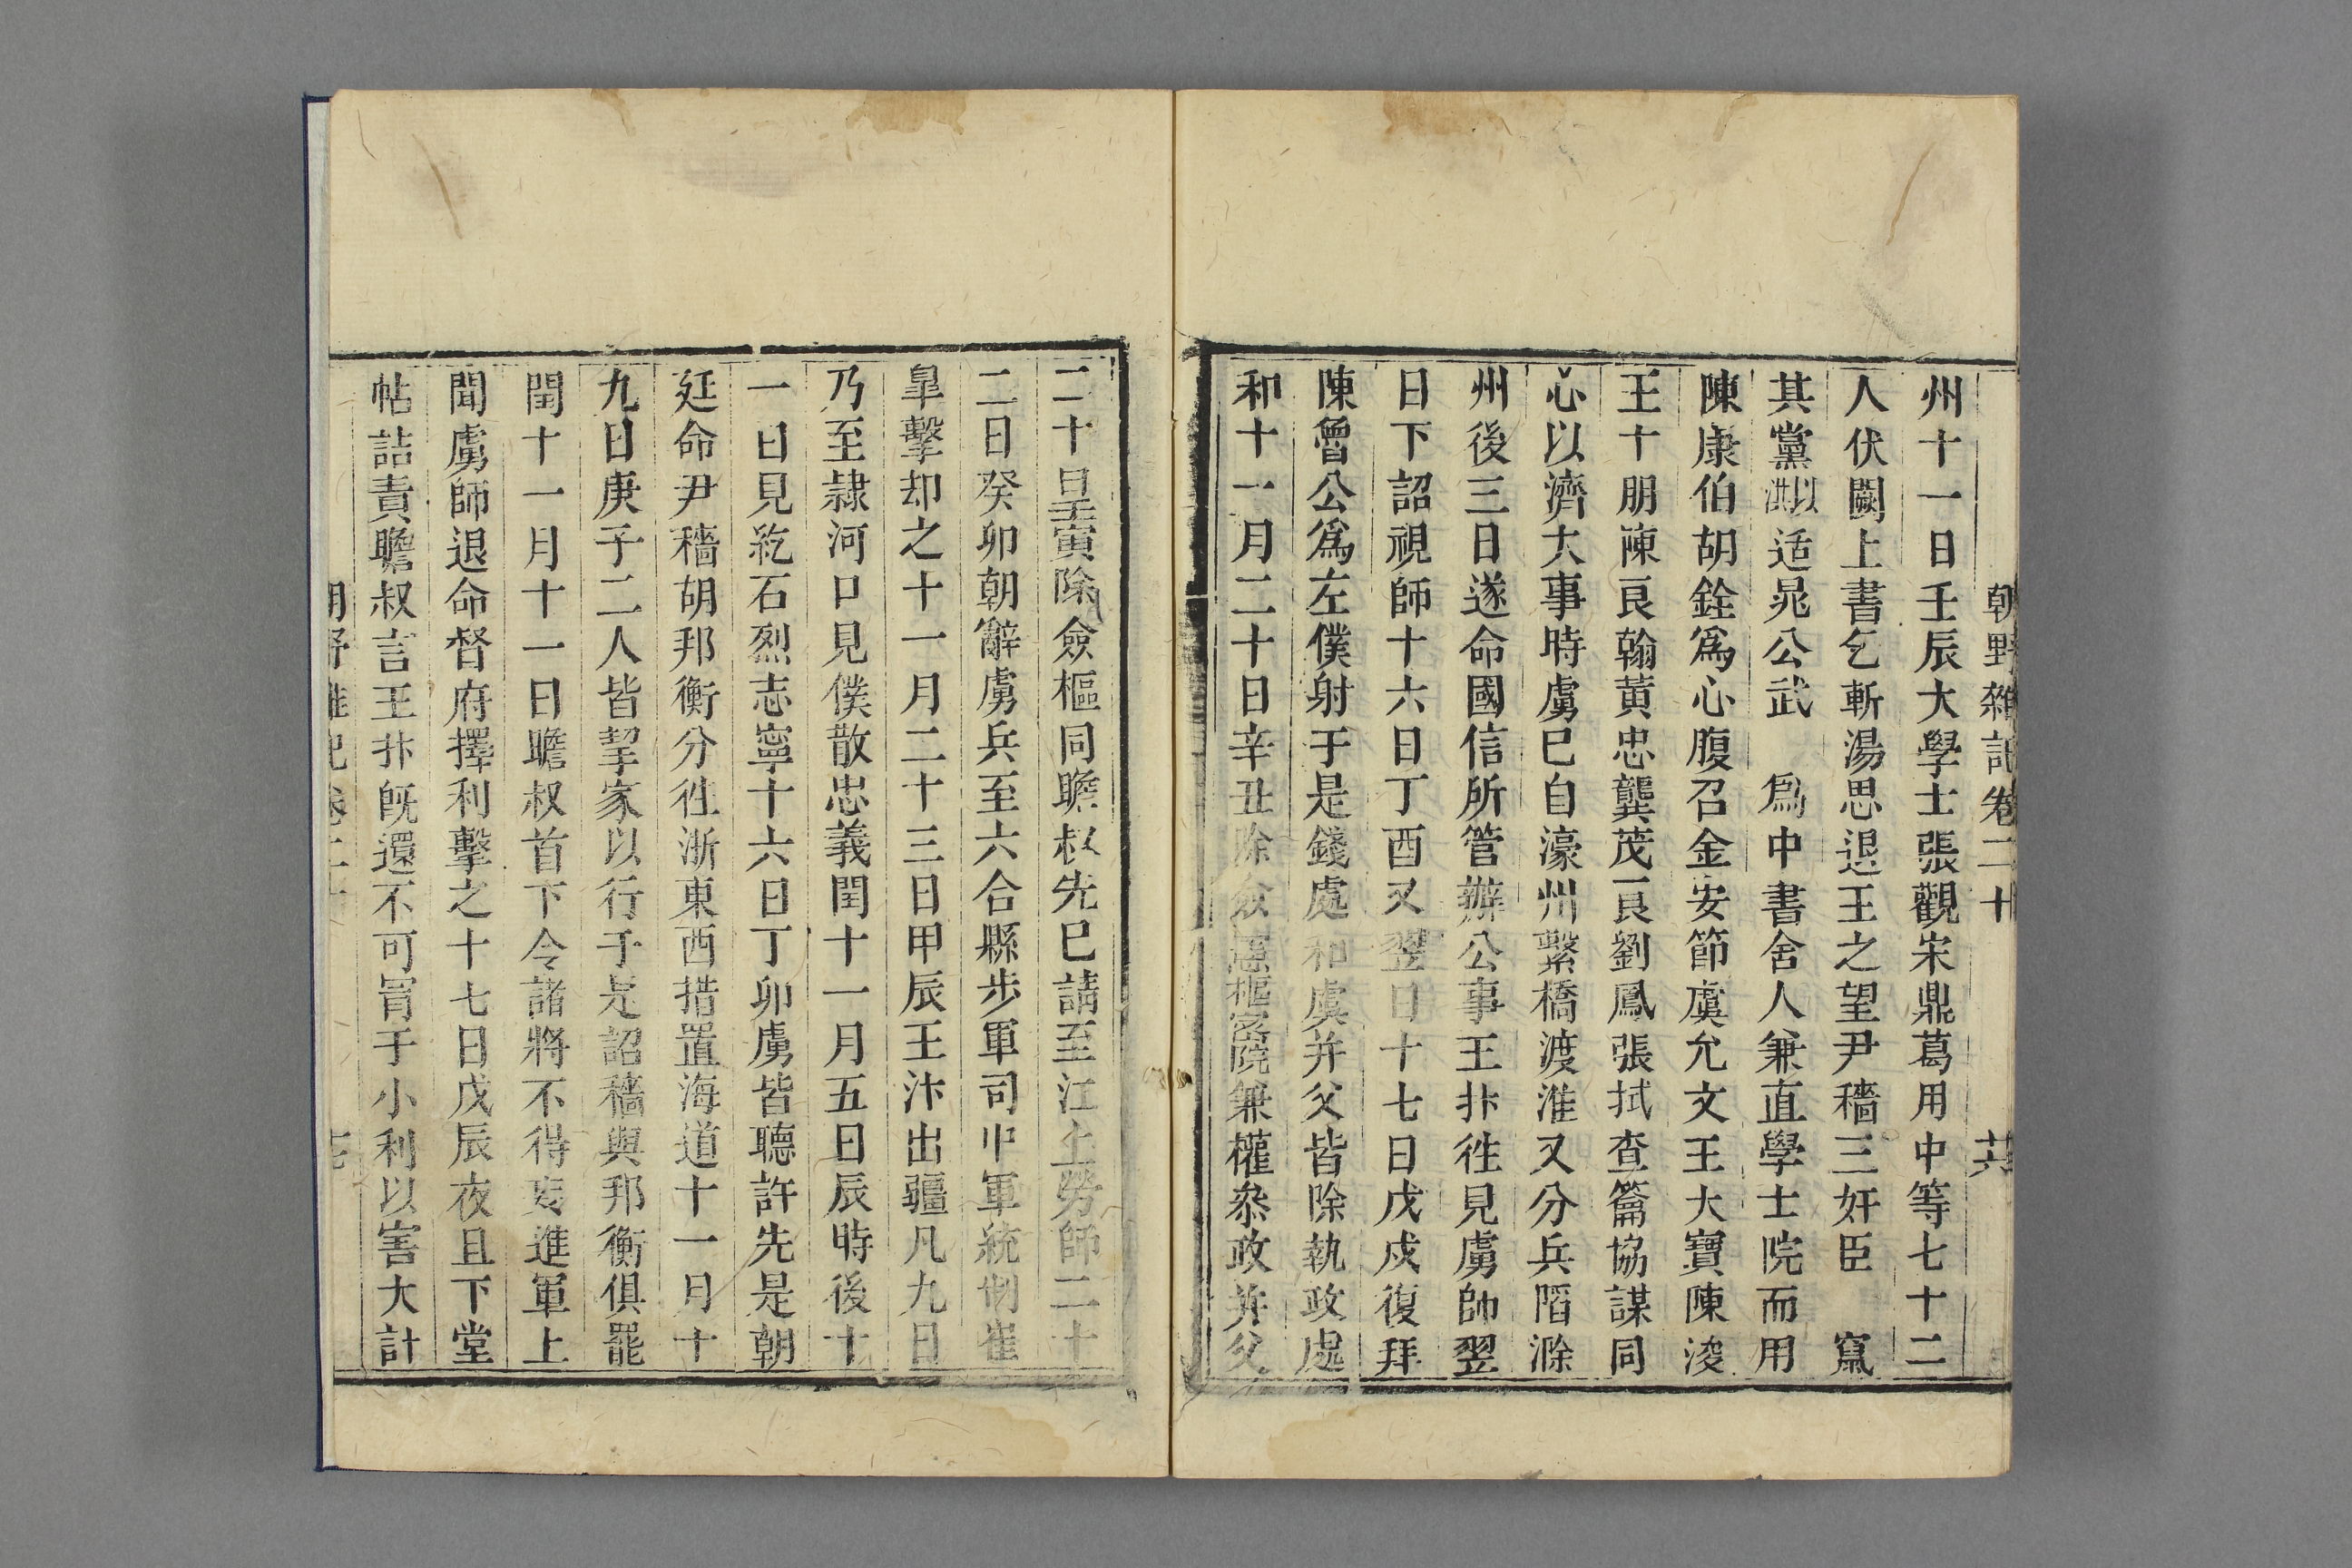 朝野雜記卷二十 共
州十一日壬辰大學士張觀宋鼎葛用中等七十二
人伏闕上書乞斬湯思退王之望尹穡三奸臣 竄
其黨洪以适晁公武 爲中書舍人兼直學士院而用
陳康伯胡銓爲心腹召金安節虞允文王大寶陳浚
王十朋陳良翰黄忠龔茂良劉鳳張拭查籥協謀同
心以濟大事時虜已自濠州繫橋渡淮又分兵陷滁
州後三日遂命國信所管辦公事王抃徃見虜帥翌
日下詔視師十六日丁酉又翌日十七日戊戌復拜
陳魯公爲左僕射于是錢處和虞并父皆除執政處
和十一月二十日辛丑除樞宻院兼權叅政并父
二十日壬寅除僉樞同瞻叔先已請至江上勞師二十
二日癸卯朝辭虜兵至六合縣步軍司中軍統制崔
皐擊却之十一月二十三日甲辰王汴出疆凡九日
乃至隷河口見僕散忠義閏十一月五日辰時後十
一日見紇石烈志寧十六日丁卯虜皆聽許先是朝
廷命尹穡胡邦衡分徃浙東西措置海道十一月十
九日庚子二人皆挈家以行于是詔穡與邦衡俱罷
閏十一月十一日瞻叔首下令諸將不得妄進軍上
聞虜師退命督府擇利擊之十七日戊辰夜且下堂
帖詰責瞻叔言王抃旣還不可冐于小利以害大計